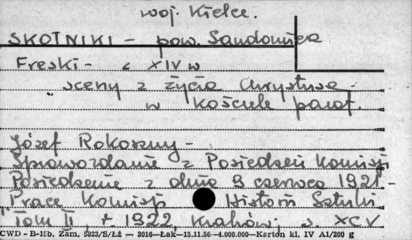 woj. Kielce.
SKOTNIKI - pow. Sandomierz
Freski - z XIV w
sceny z życia Chrystusa -
w kościele paraf.
Józef Rokoszny -
Sprawozdanie z Posiedzeń Komisji
Posiedzenie z dnia 9 czerwca 1921 -
"Prace Komisji Historii Sztuki
"Tom II, r. 1922, Kraków, s. XCV
CWD - B-15b. Zam. 5823/S/Łż - 3016 - Łak - 15.11.56 - 4.000.000 - Karton kl. IV A1/200 g